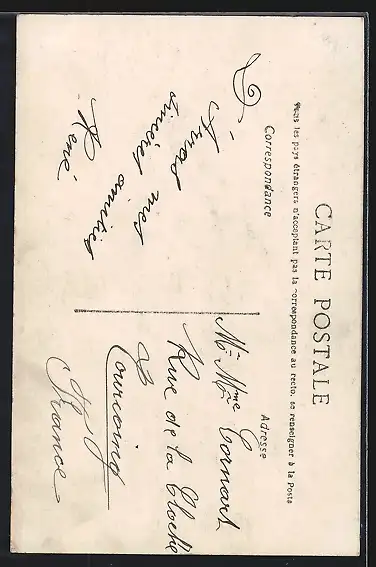 CARTE POSTALE
Tous les pays étrangers n'acceptant pas la correspondance au recto, se renseigner à la Poste
Correspondance
À
vous mes
sincères amitiés
René
Adresse
Mr Mme Cornart
Rue de la Cloche
à Tourcoing
France